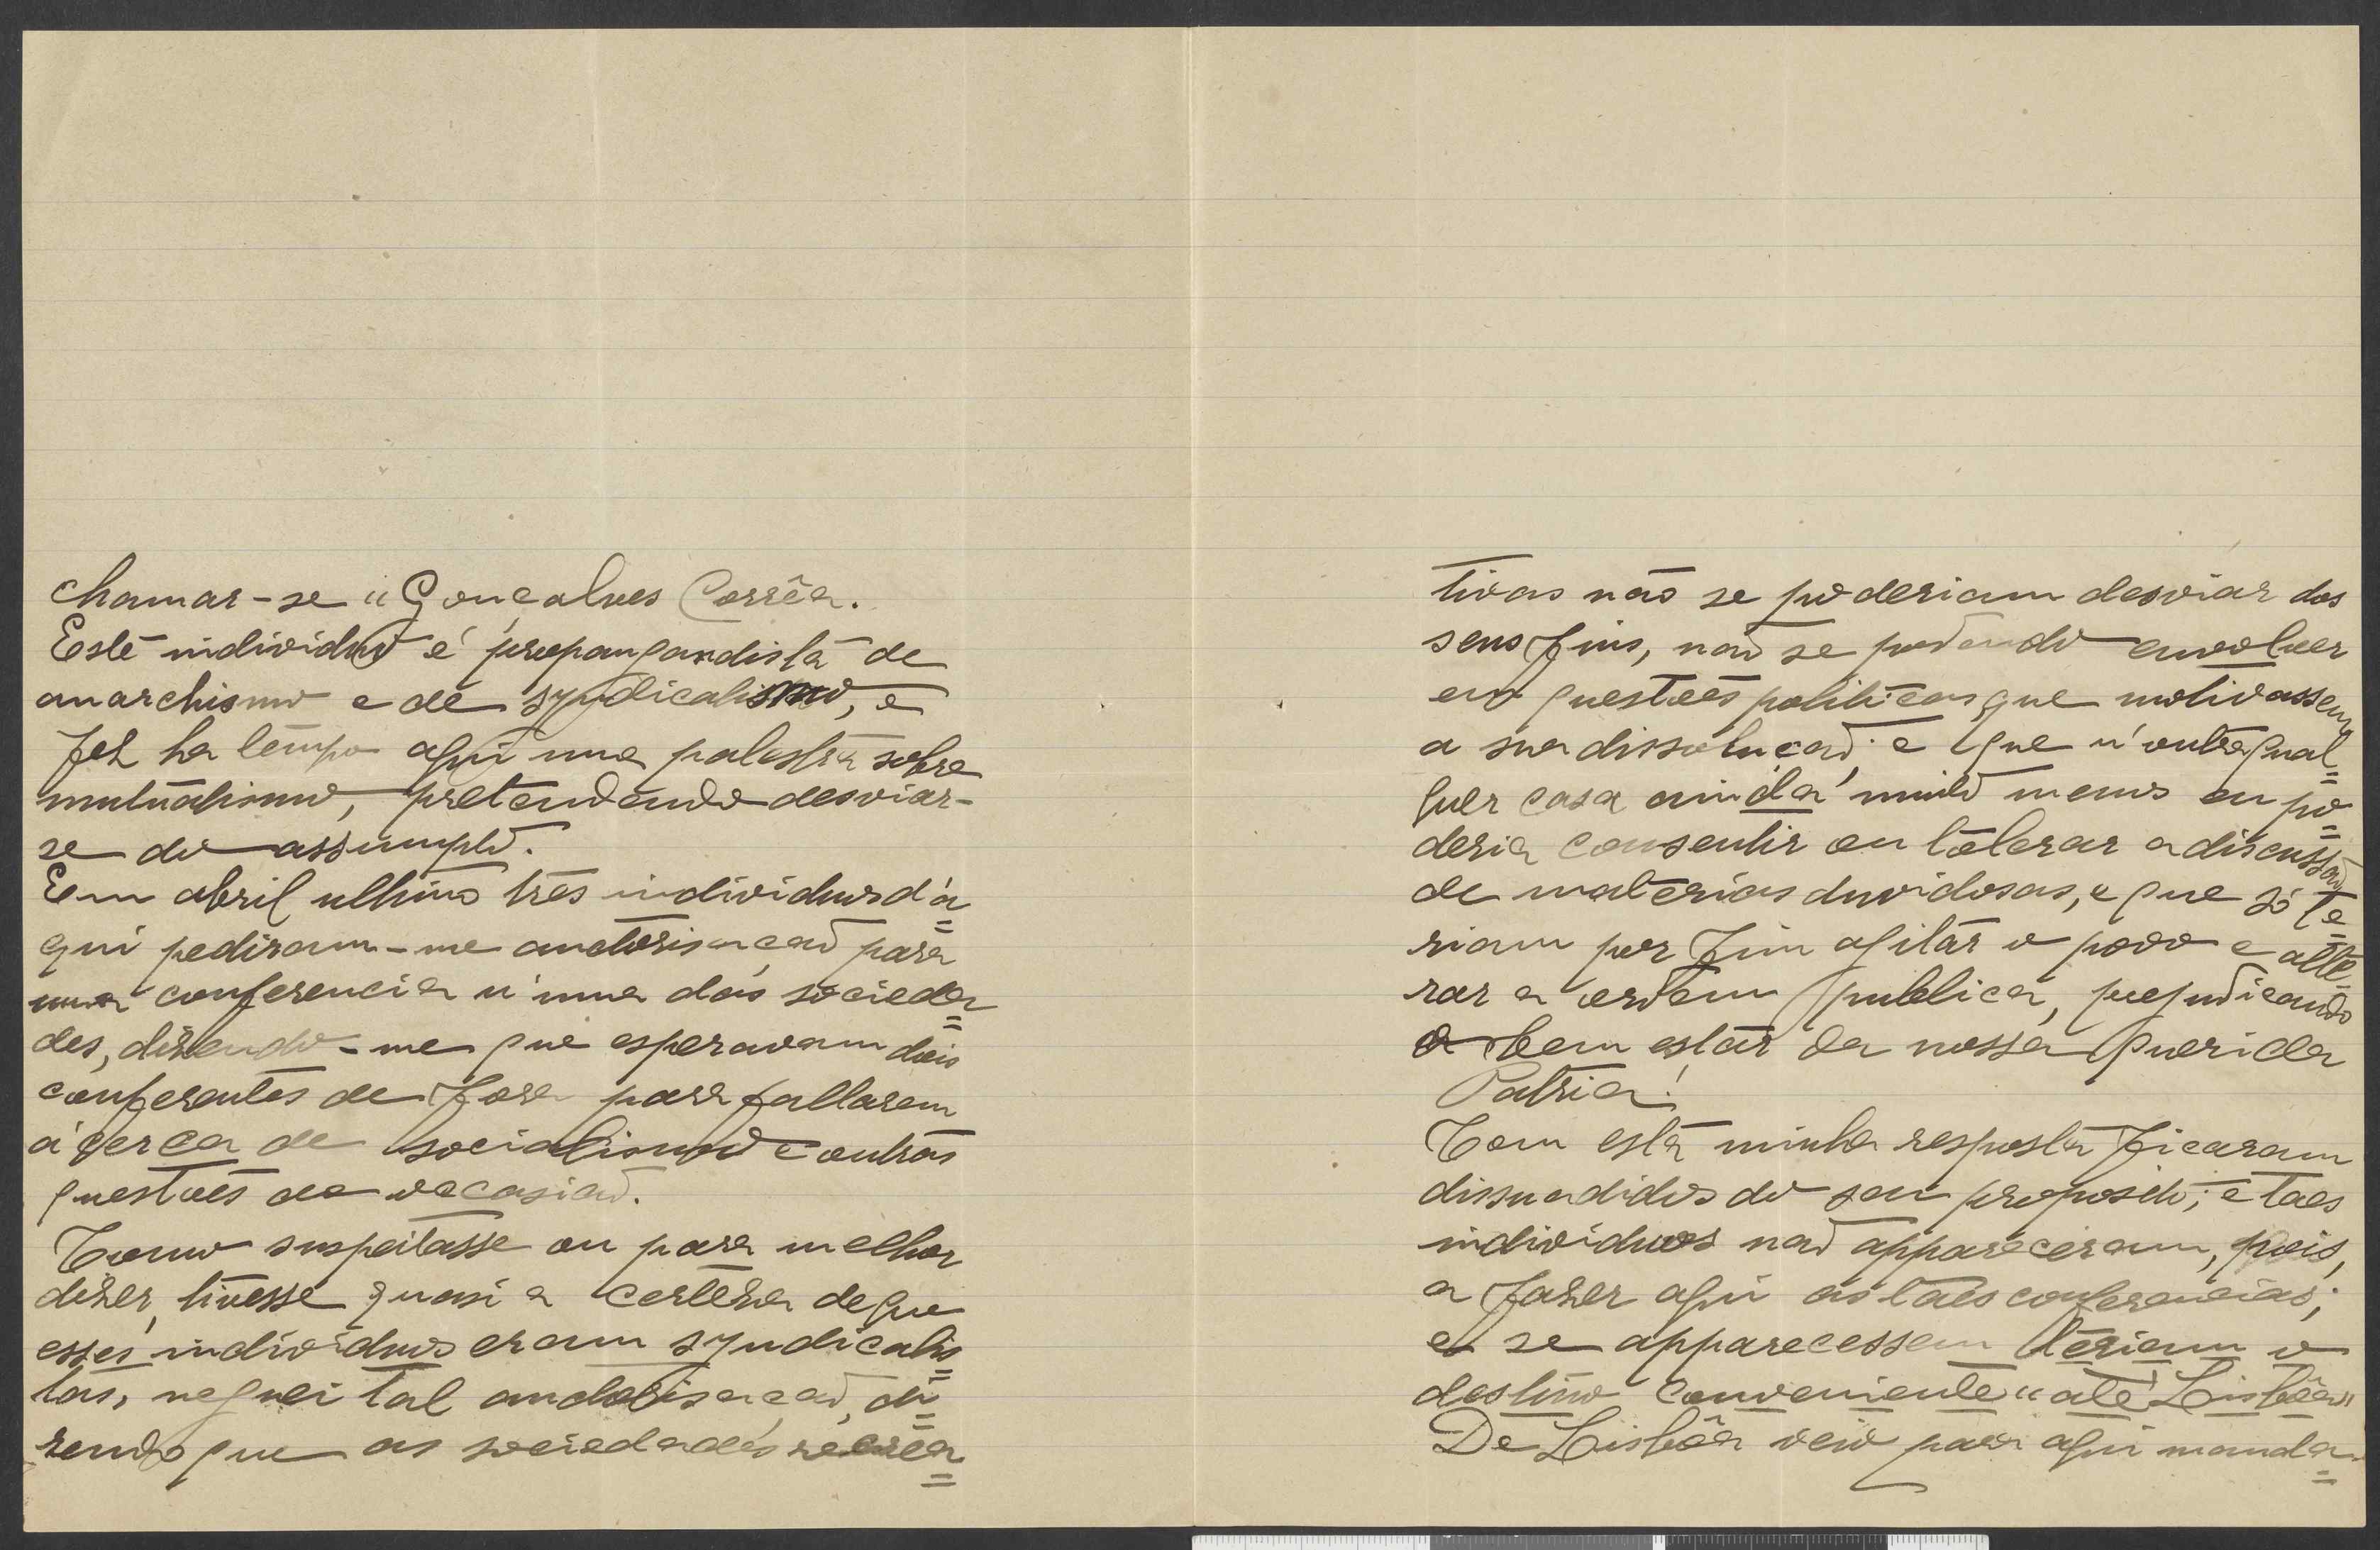 chamar-se "Gonçalves Corrêa.
Este individuo é propangandista de
anarchismo e de syndicalismo, e
fez ha tempo aqui uma palestra sobre
mutualismo, pretendendo desviar-
se do assumpto.
Em abril ultimo três individuos d'a=
qui pediram-me auctorisação para
uma conferencia n'uma das socieda=
des, dizendo-me que esperavam dois
conferentes de fora para fallarem
á cerca de socialismo e outras
questões de occasião.
Como suspeitasse ou para melhor
dizer, tivesse quasi a certeza de que
esses individuos eram syndicalis=
tas, neguei tal auctorisação, di=
zendo que as sociedades recrea=
tivas não se poderiam desviar dos
seus fins, não se podendo envolver
em questões politicas que motivassem
a sua dissolução; e que n'outra qual=
quer casa ainda muito menos eu po=
deria consentir ou tolerar a discussão
de materias duvidosas, e que só te=
riam por fim agitar o povo e alte=
rar a ordem publica, prejudicando
o bem estar da nossa querida
Patria!
Com esta minha resposta ficaram
dissuadidos do seu proposito; e taes
individuos não appareceram, pois,
a fazer aqui as taes conferencias;
e se apparecessem teriam o
destino conveniente "até Lisbôa"
De Lisbôa veio para aqui manda=